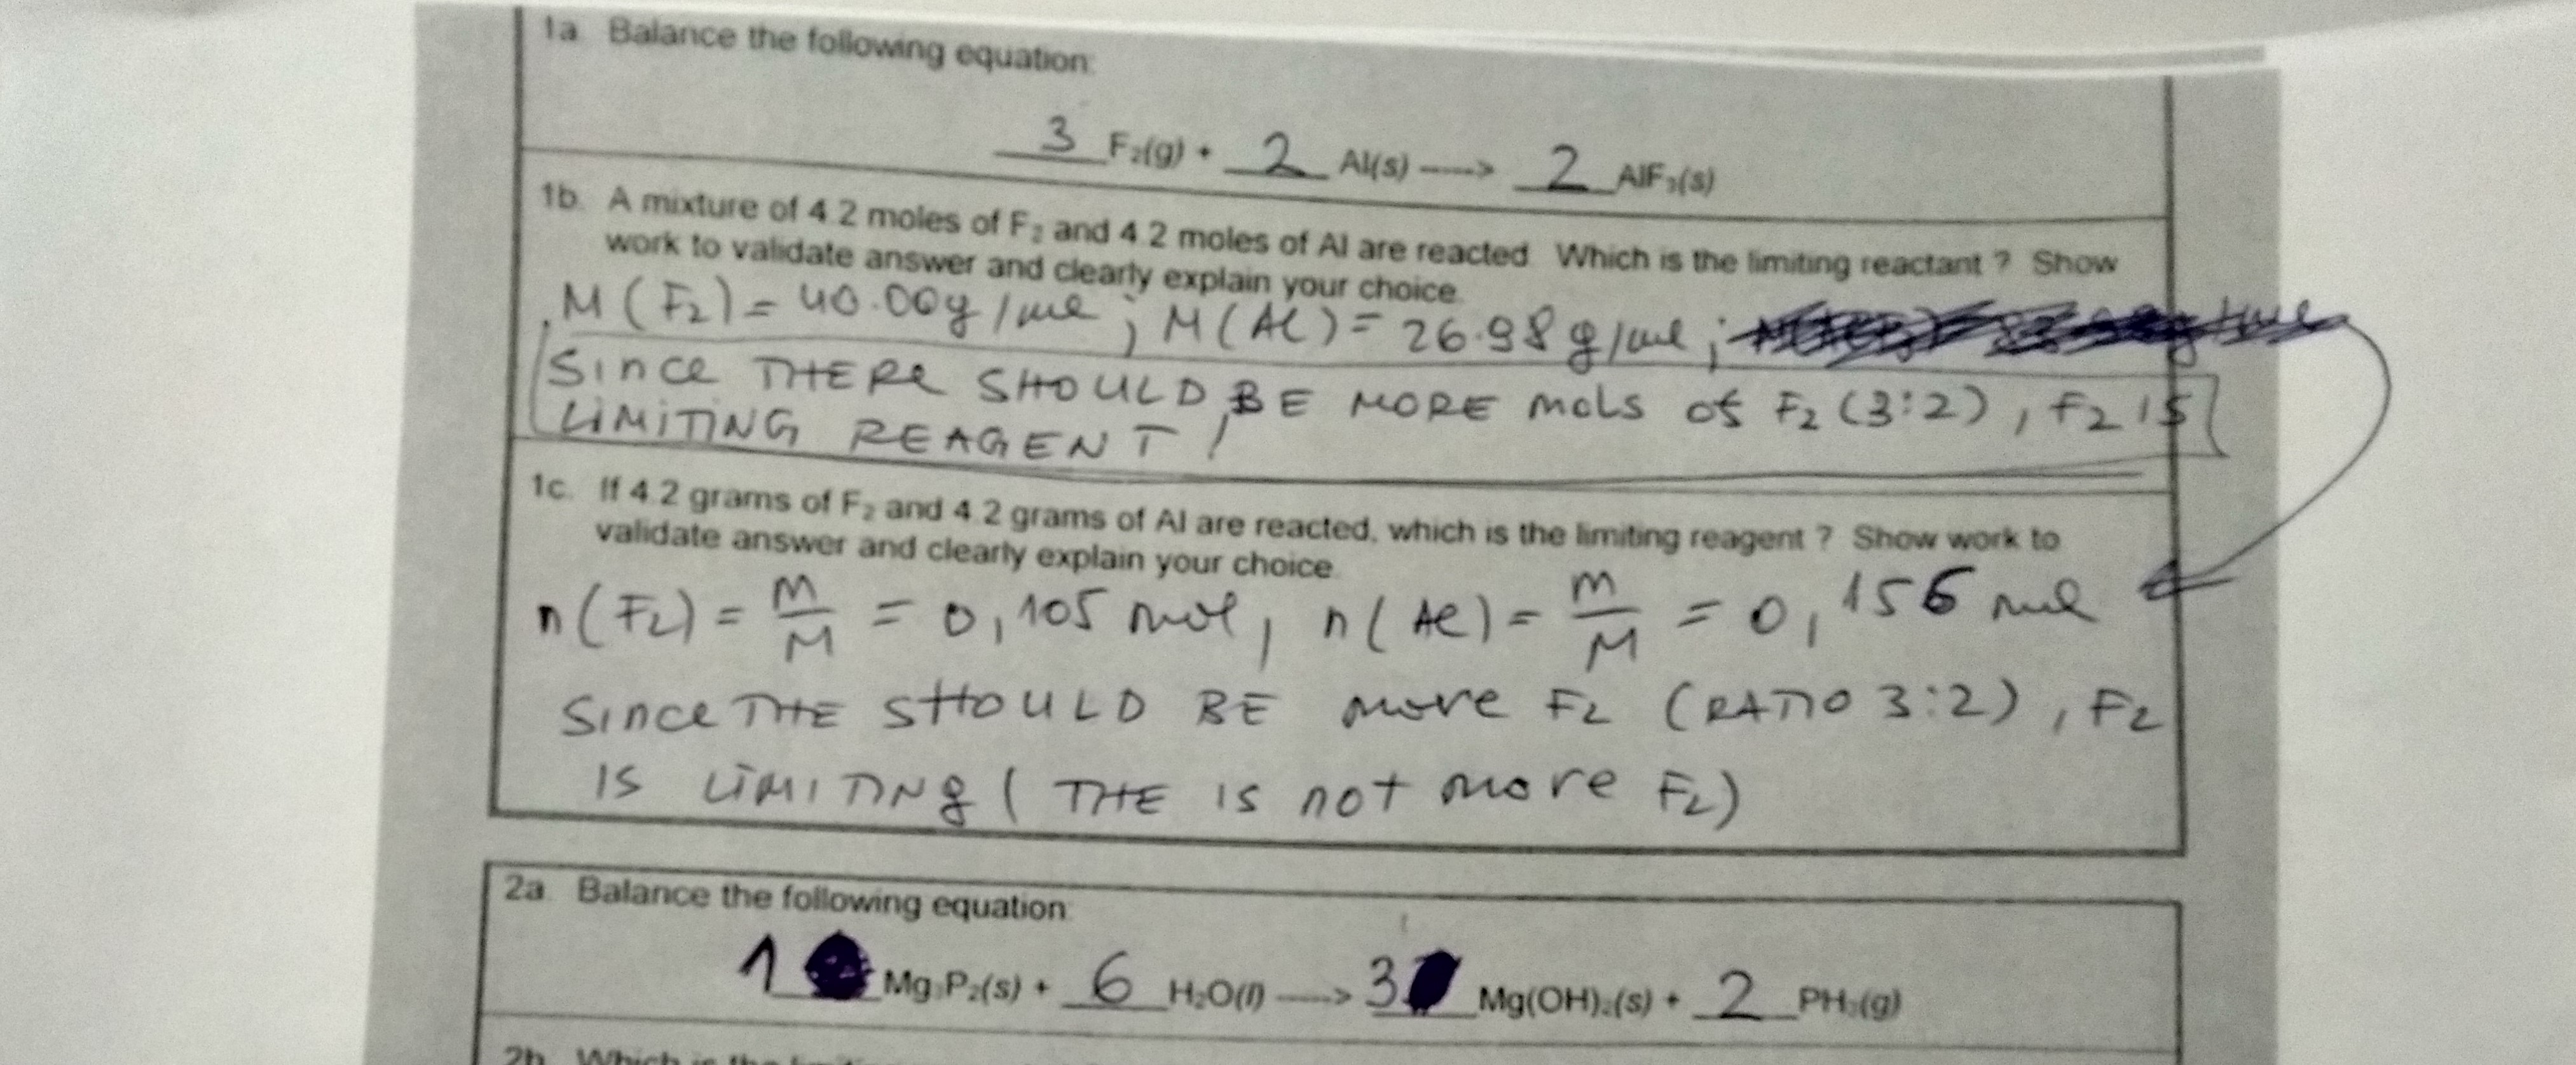 1a. Balance the following equation:
3 F₂(g) + 2 Al(s) ----> 2 AlF₃(s)
1b. A mixture of 4.2 moles of F₂ and 4.2 moles of Al are reacted. Which is the limiting reactant ? Show
work to validate answer and clearly explain your choice.
M(F₂) = 40.00g/mol ; M(Al) = 26.98 g/mol ;
SINCE THERE SHOULD BE MORE mols of F₂ (3:2), F₂ IS
LIMITING REAGENT!
1c. If 4.2 grams of F₂ and 4.2 grams of Al are reacted, which is the limiting reagent ? Show work to
validate answer and clearly explain your choice.
n(F₂) = m/M = 0,105 mol, n(Al) = m/M = 0,156 mol
SINCE THE SHOULD BE more F₂ (RATIO 3:2), F₂
IS LIMITING (THE IS not more F₂)
2a. Balance the following equation:
1 Mg₃P₂(s) + 6 H₂O(l) ----> 3 Mg(OH)₂(s) + 2 PH₃(g)
2b. Which is the